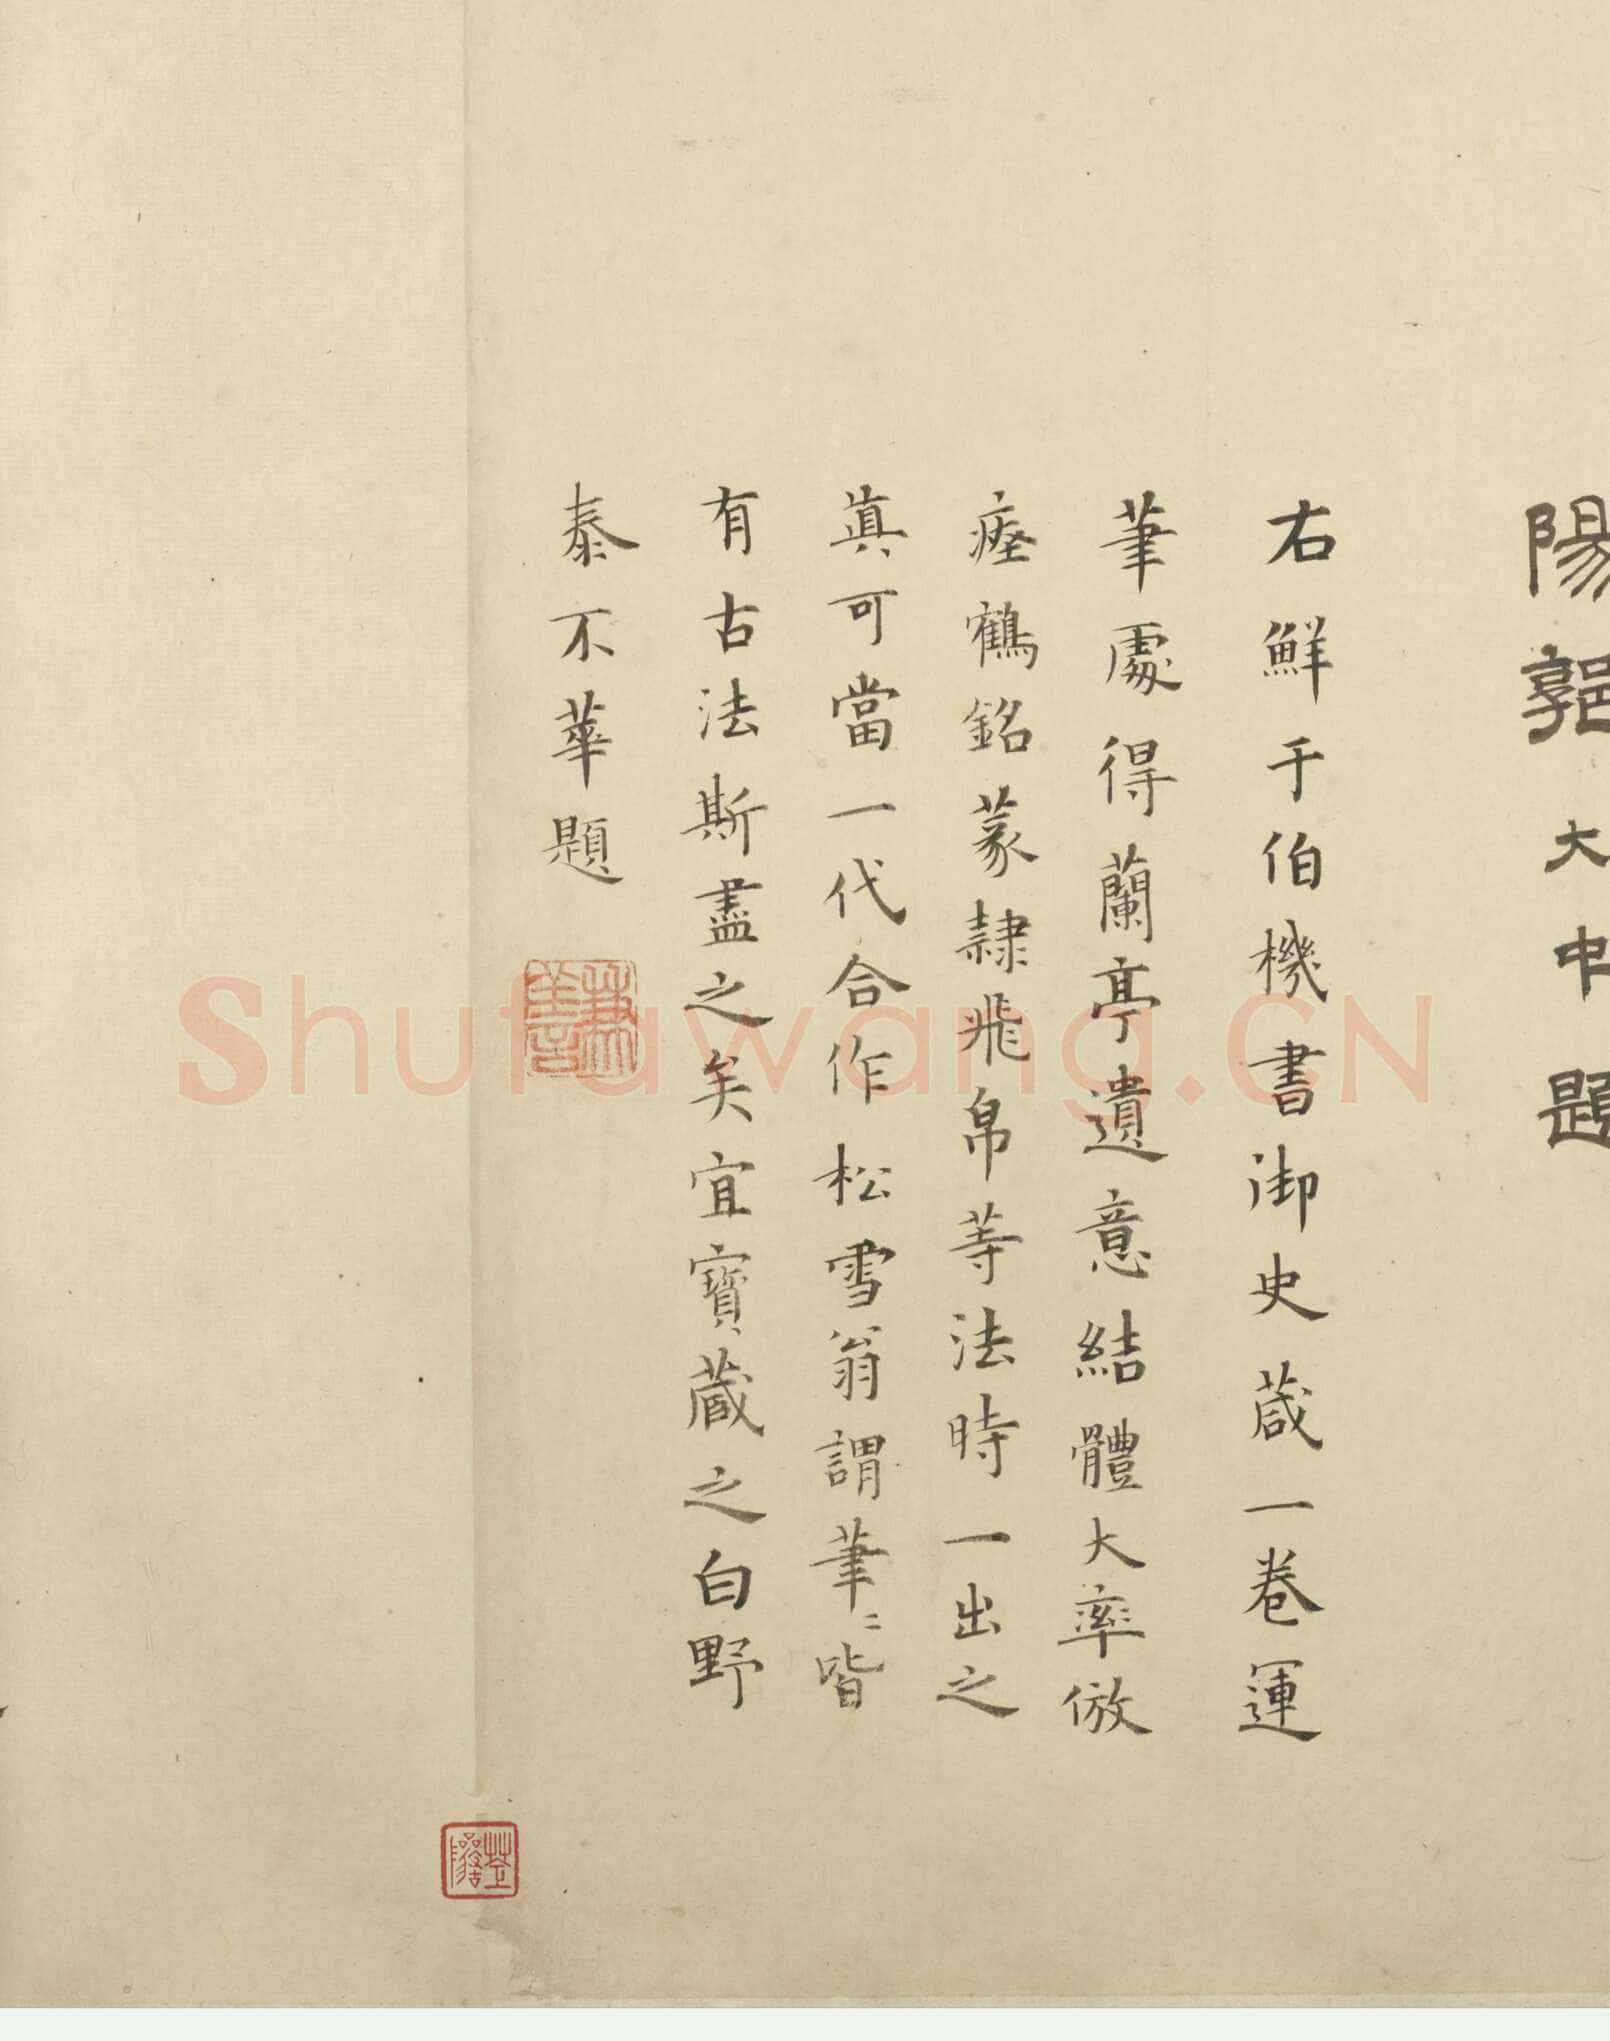 陽郭大中題
右鮮于伯機書御史蔵一卷運
筆處得蘭亭遺意結體大率倣
瘞鶴銘篆隷飛帛等法時一出之
眞可當一代合作松雪翁謂筆〻皆
有古法斯盡之矣宜寳蔵之白野
泰不華題
兼善
Shufawang.CN